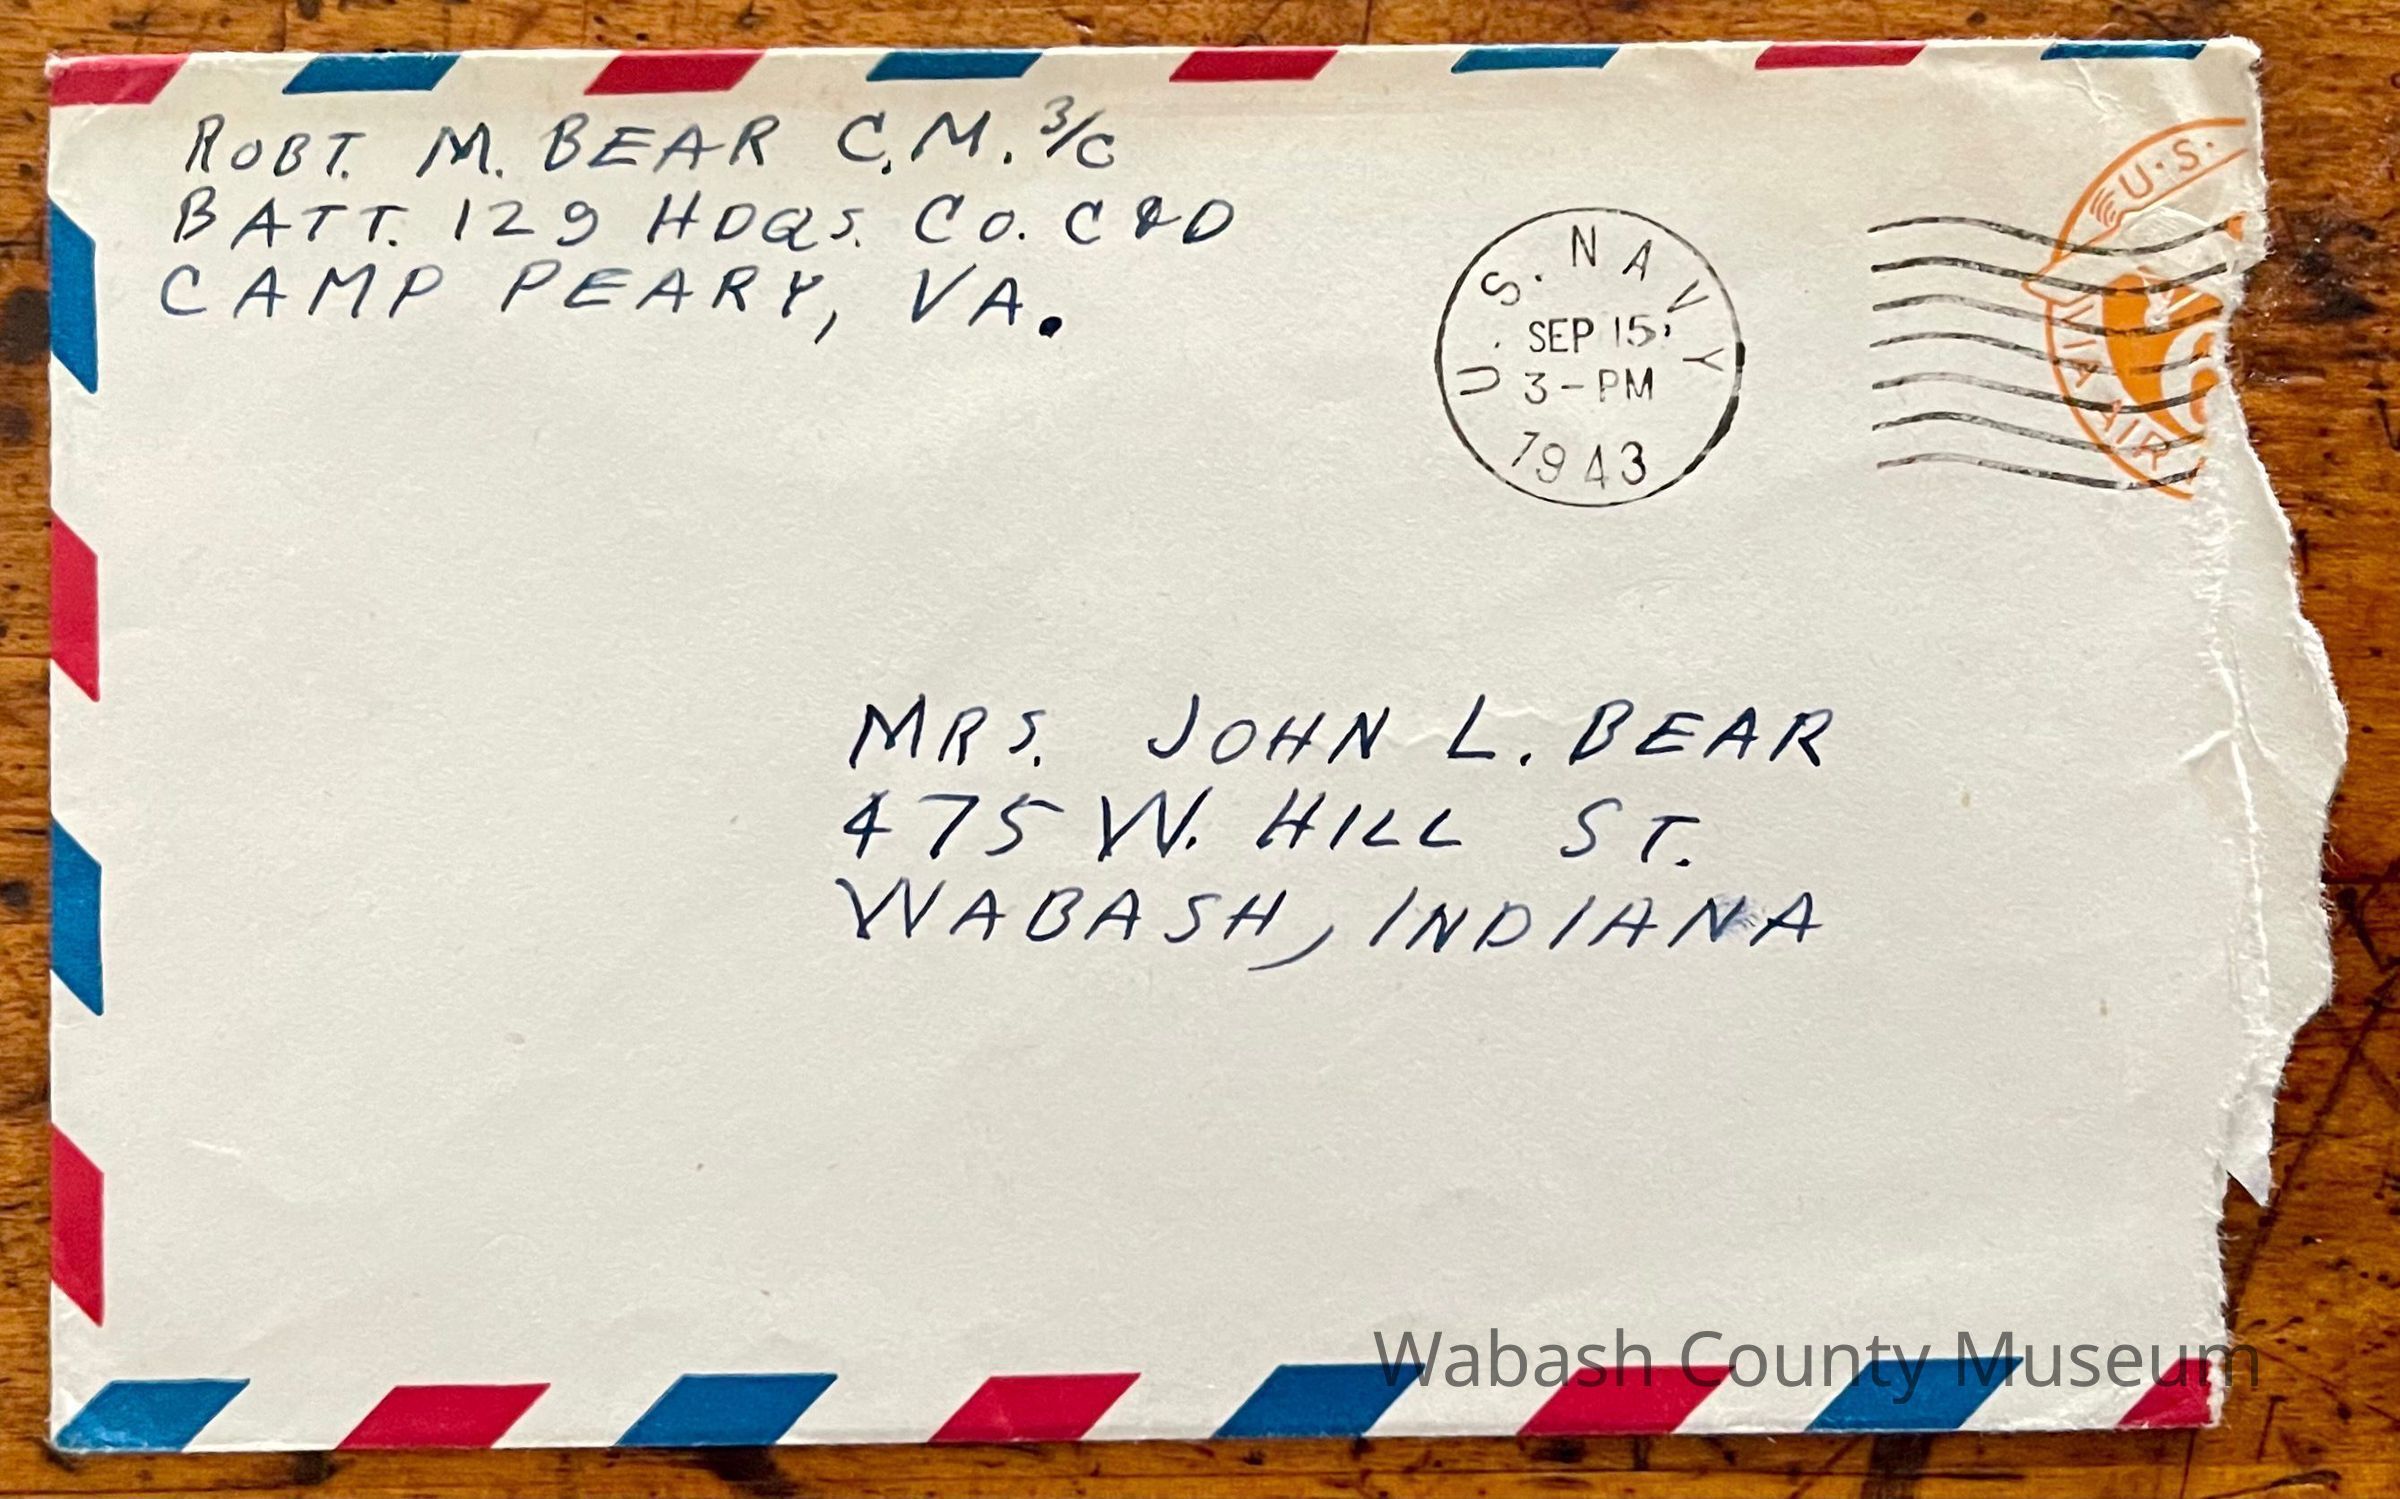 ROBT. M. BEAR C.M. 3/C
BATT. 129 HDQS. CO. C&D
CAMP PEARY, VA.
U.S. NAVY
SEP 15
3-PM
1943
U.S.
VIA AIR
MRS. JOHN L. BEAR
475 W. HILL ST.
WABASH, INDIANA
Wabash County Museum